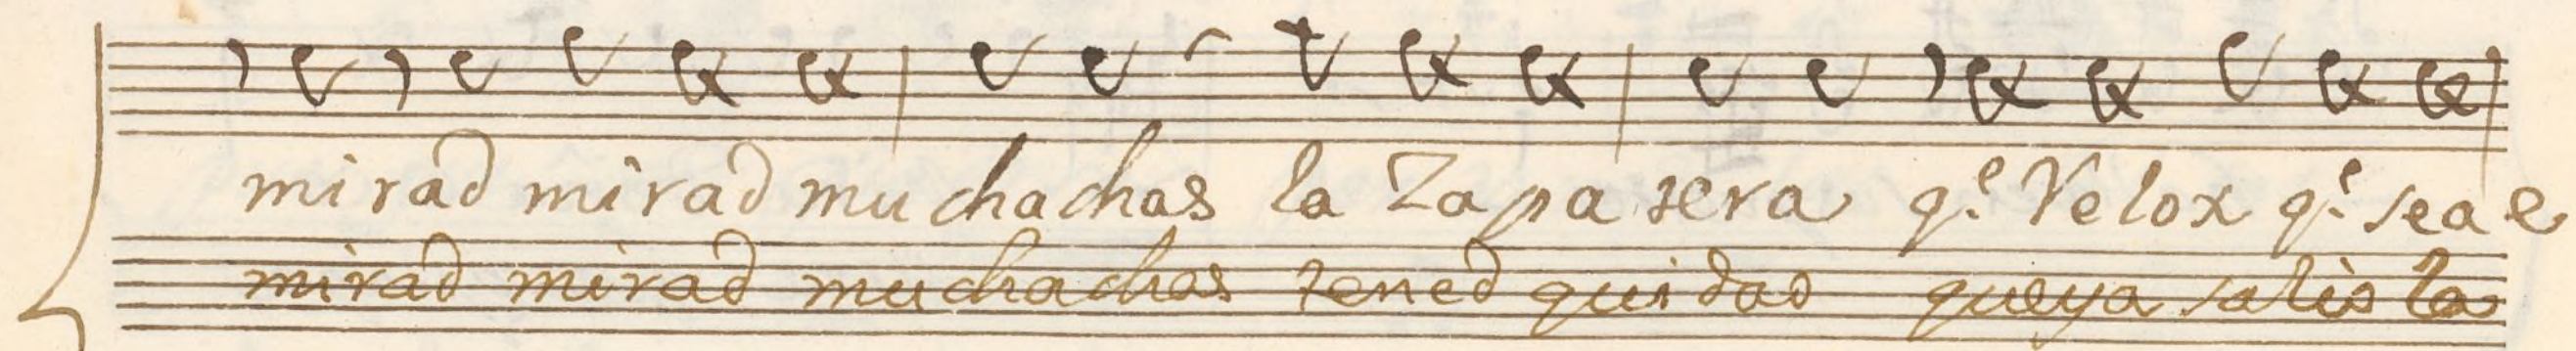 mirad mirad muchachas la Zapatera q.e Velox q.e sea e
mirad mirad muchachas tened quidado que ya saliò la